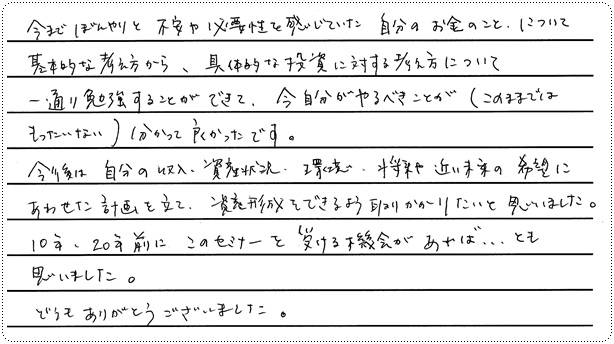 今までぼんやりと不安や必要性を感じていた 自分のお金のこと、について
基本的な考え方から、具体的な投資に対する考え方について
一通り勉強することができて、今自分がやるべきことが(このままでは
もったいない)分かって良かったです。
今後は自分の収入、資産状況、環境、将来や近い未来の希望に
あわせた計画を立て、資産形成をできるよう取りかかりたいと思いました。
10年、20年前にこのセミナーを受ける機会があれば...とも
思いました。
どうもありがとうございました。